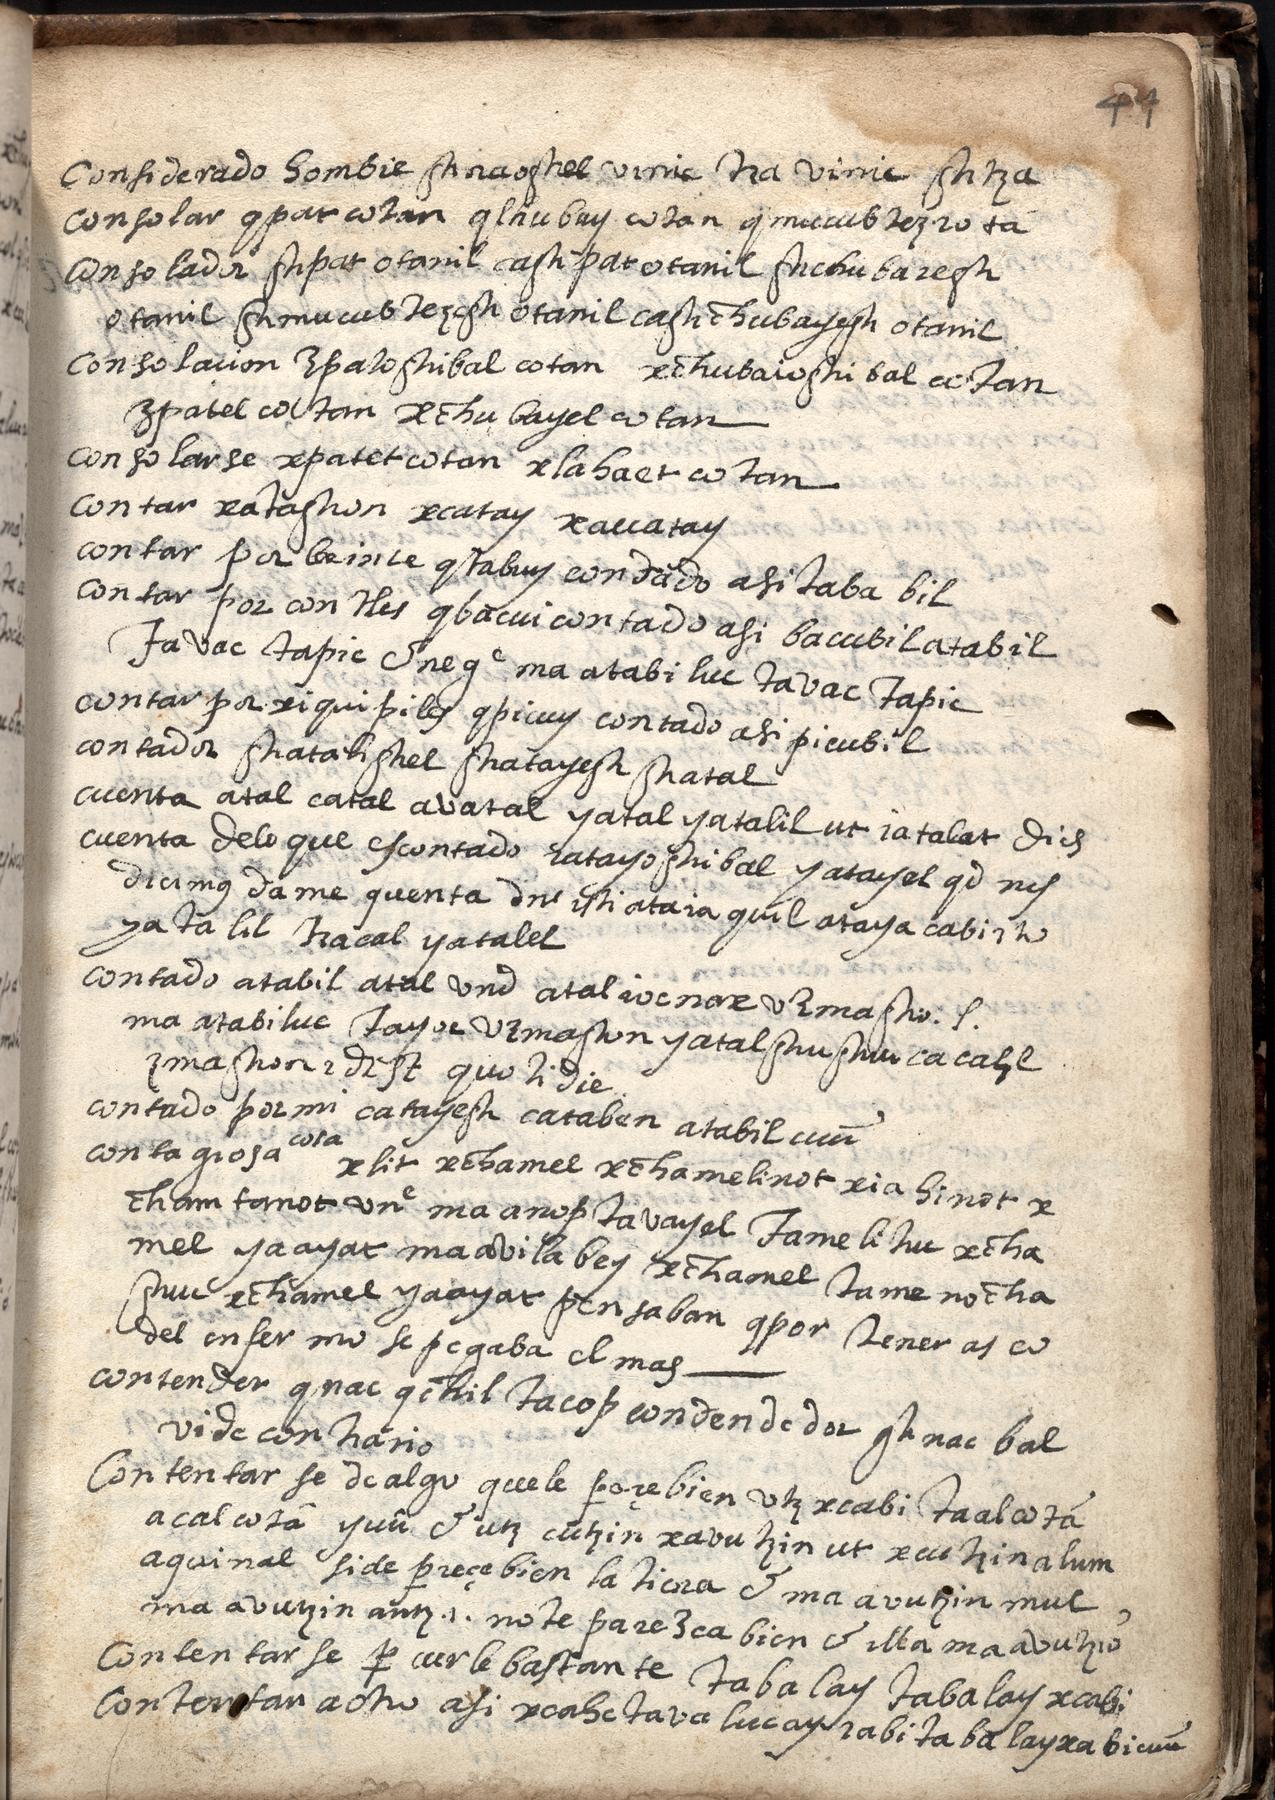 44
Considerado hombre shnaoshel vinic tza vinic shtza
consolar qpat cotan qlhubuy cotan qmucub tez 
consolador shpat otanil cash pat otanil shchubaresh
otanil shmucubtezesh otanil cashchubayesh otanil
consolacion zpatoshibal cotan xchubaioshibal cotan
zpatel cotan xchubayel cotan
consolarse xpatet cotan xlahaet cotan
contar xatashon xcatay xaucatay
contar por beinte qtabuy contado asi taba bil
contar por contles qbacui contado asi bacubil atabil
tavac tapic & neg.e ma atabiluc tavac tapic
contar por xiquipiles qpicuy contado asi picubil
contador shatalishel shatayesh shatal
cuenta atal catal avatal yatal yatalil ut iatalat dies
cuenta delo que es contado iatayoshibal yatayel qd 
dicimg dame quenta ataia quil ataya cabi
yatalil tzacal yatalel
contado atabil atal und atal vzmasho. s.
ma atabiluc tayoc vzmashon yatal cacahl
zmashon idest quotidie
contado por mi catayesh cataben atabil cuū
contagiosa cosa xlit xchamel xchamelinot xiahinot x
cham tanot une ma anop tavayel tamelihuc xcha
mel yaayat ma avilabey xchamel tame no cha
shuc xchamel yaayat pensaban qpor tener as co
del enfermo se pegaba el mas
contender qnac qchil tacop condendedor shnac bal
vide contrario
Contentar se de algo quele pareçe bien utz xcabi taal cotā
acal cotā yuū & utz cutzin xavutzin ut xcutzin alum
aquinal side pareçe bien la tierra & ma avutzin mul
ma avutzin antz .i. no te parezca bien & illa ma avutziō
Contentarse p averle bastante tabalay tabalay xcabi
Contentan a otro asi xcahc tavalucay rabi tabalay xa bicuū